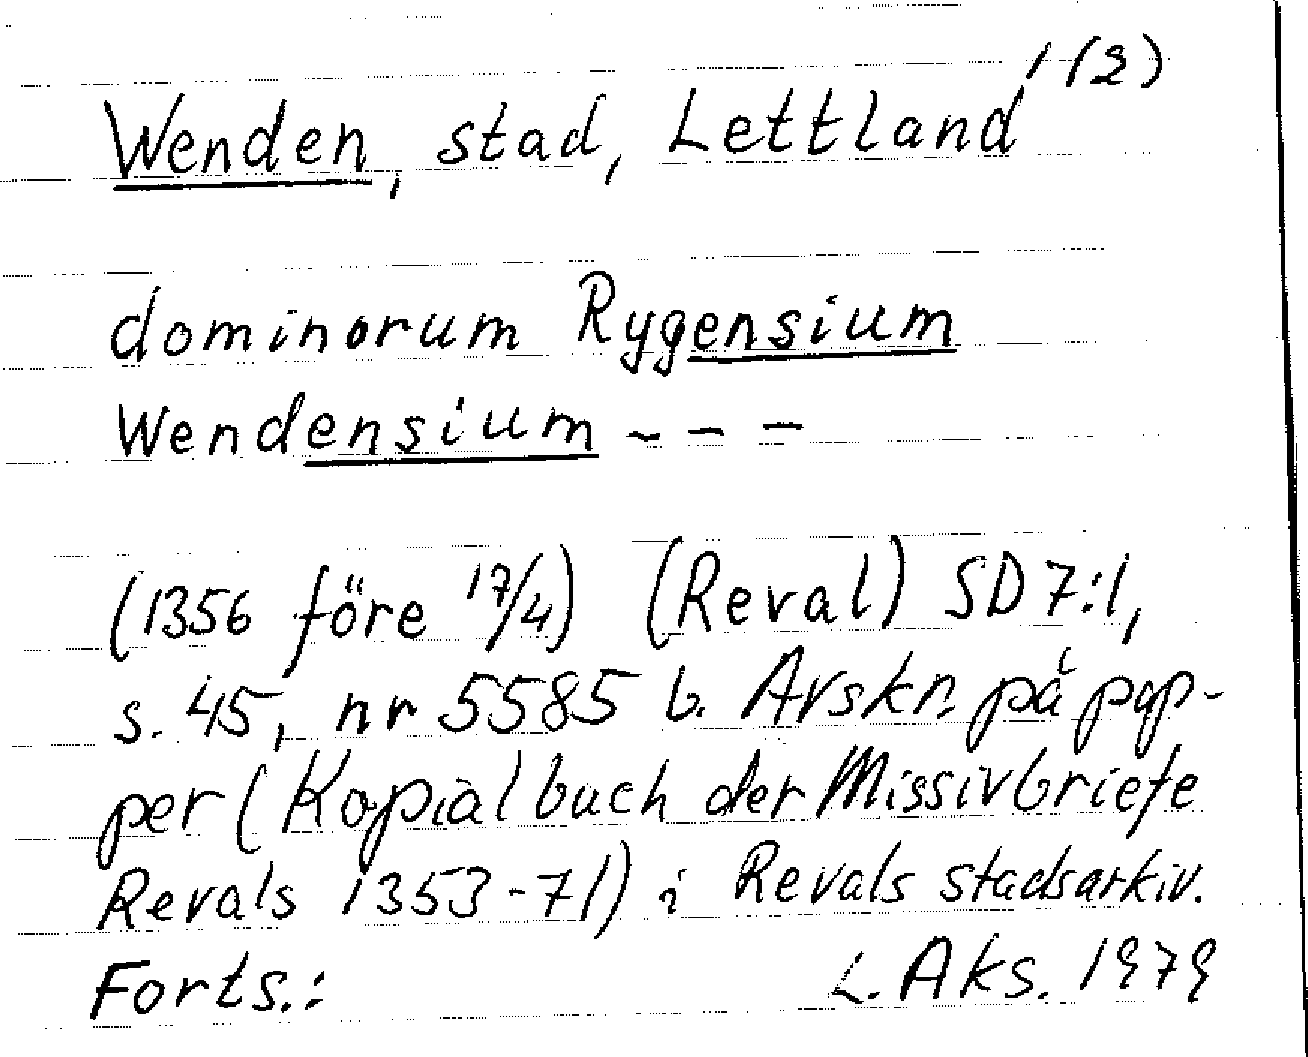 1 (2)
Wenden, stad, Lettland
dominorum Rygensium
Wendensium - - -
(1356 före 17/4) (Reval) SD 7:1,
s. 45, nr 5585 b. Avskr. på pap-
per (Kopialbuch der Missivbriefe
Revals 1353-71) i Revals stadsarkiv.
Forts.: L. Aks. 1979